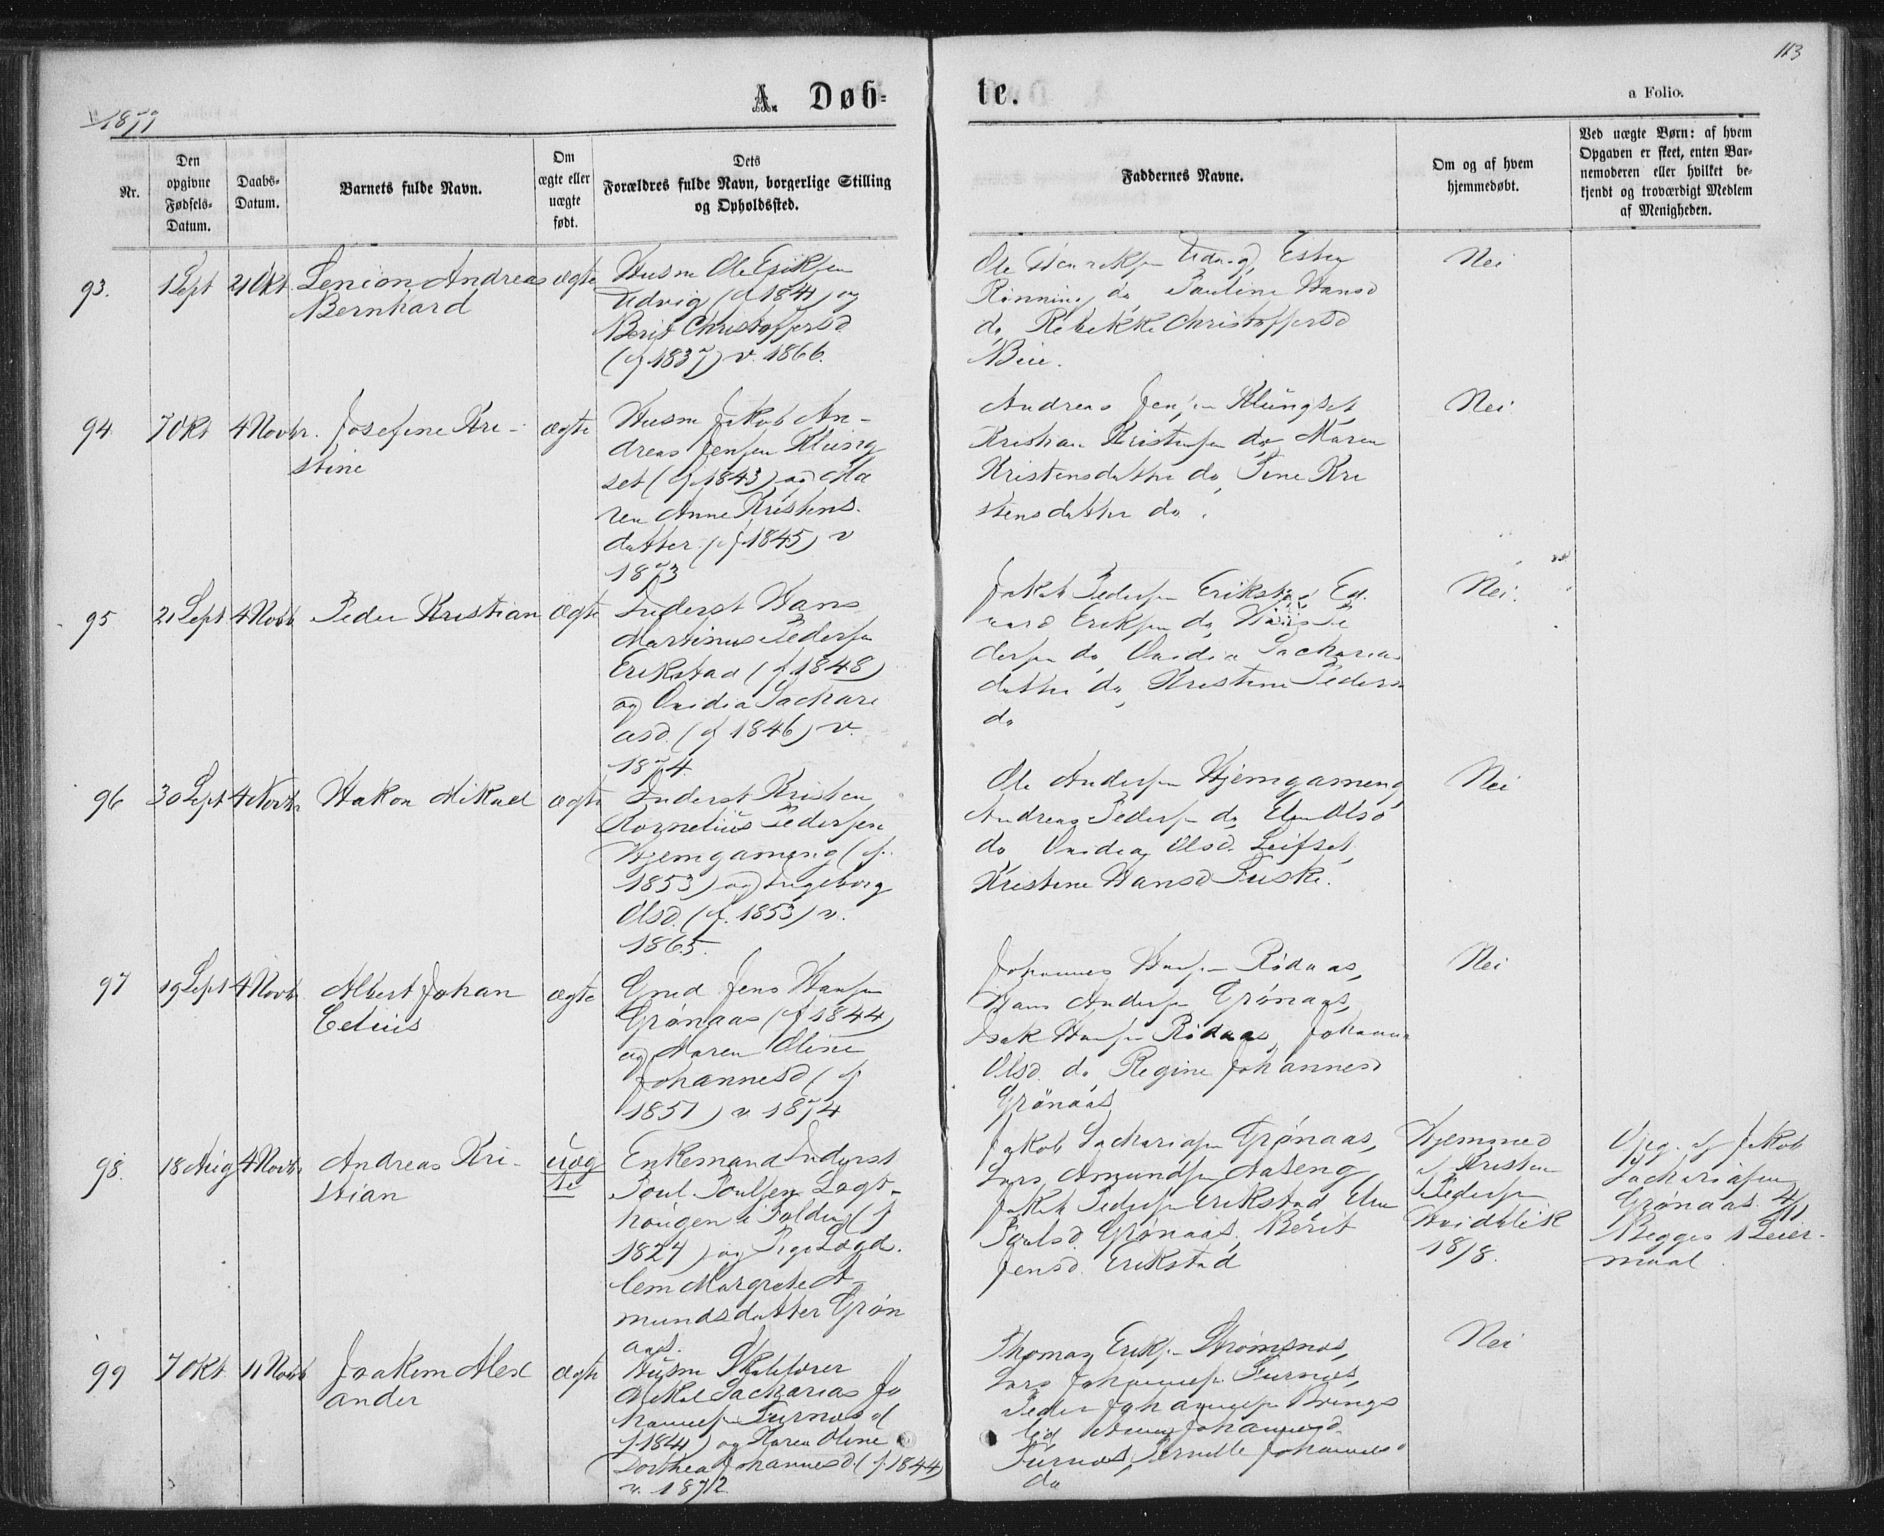 113
A. Døb=
te.
a Folio.
1877
Nr.
Den
opgivne
Fødsels-
Datum.
Daabs-
Datum.
Barnets fulde Navn.
Om
ægte eller
uægte
født.
Dets
Forældres fulde Navn, borgerlige Stilling
og Opholdssted.
Faddernes Navne.
Om og af hvem
hjemmedøbt.
Ved uægte Børn: af hvem
Opgaven er skeet, enten Bar-
nemoderen eller hvilket be-
kjendt og troværdigt Medlem
af Menigheden.
93.
1 Sept
21 Okt.
Andreas
Bernhard
ægte
Husm Ole Eriksen
Udvig (f 1841) og
Berit Christoffersd
(f 1837) v. 1866.
Ole Henriksen Udvig,
Rønning do, Pauline Hansd
do, Rebekke Christoffersd
Nei
94
7 Okt
4 Novbr.
Josefine Kri-
stine
ægte
Husm Jakob An-
dreas Jensen Klung
set (f 1843) og Ma
ren Anne Kristens.
datter (f 1845) v
1873
Andreas Jensen Klungset,
Kristian Kristensen do, Maren
Kristensdatter do, Kri
stensdatter do.
Nei
95
21 Sept
4 Novb
Peder Kristian
Ægte
Inderst Hans
Martinus Pedersen
Erikstad (f 1848)
og Ovidia Sachari
asd. (f 1846) v.
1874
Jakob Pedersen Erikstad, Ed.
vard Eriksen do, Hans Pe
dersen do, Ovidia Sacharias
datter do, Kristine Pedersd
do
Nei.
96
30 Sept
4 Novb
Hakon Mikael
ægte
Inderst Kristen
Kornelius Pedersen
Hjemgameng (f.
1853) og Ingeborg
Olsd. (f. 1853) v.
1865.
Ole Andersen Hjemgameng,
Andreas Pedersen do, Olsd
do Ovidia Olsd. Leifset,
Kristine Hansd Fuske.
Nei
97
19 Sept
4 Novb
Albert Johan
Edius
ægte
Gmd Jens Hansen
Grønaas (f 1844)
og Maren Oline
Johannesd (f
1851) v. 1874
Johannes Hansen Rødaas,
Hans Andersen Grønaas,
Isak Hansen Rødaas, Johanna
Olsd. do Regine Johannesd
Grønaas
Nei
98.
18 Aug
4 Novb
Andreas Kri-
stian
uæg
te
Enkemand Inderst
Poul Poulsen Lagt-
hougen i Folden (f
1827) og Pige Lægd.
lem Margrete A-
mundsdatter Grøn
aas.
Jakob Sachariasen Grønaas,
Lars Amundsen Aaseng
Jakob Pedersen Erikstad,
Paulsd Grønaas, Berit
Jensd. Erikstad
Hjemmed
af Kristen
Pedersen
18/8.
Opg. af Jakob
Sachariasen
Grønaas 4/11
Begges 1 Leier-
maal.
99
7 Okt
11 Novb
Joakim Alex
ander
ægte
Husm Skoleløser
Mikal Sacharias Jo
hannesen Furnes d
f 1841) og Karen Oline
Dorthea Johannesd (f 1844)
v. 1872
Thomas Eriksen Strømsnes,
Lars Johannesen Furnes,
Peder Johannesen Brings
lid Johannesd.
Furnes, Pernille Johannesd
do
Nei